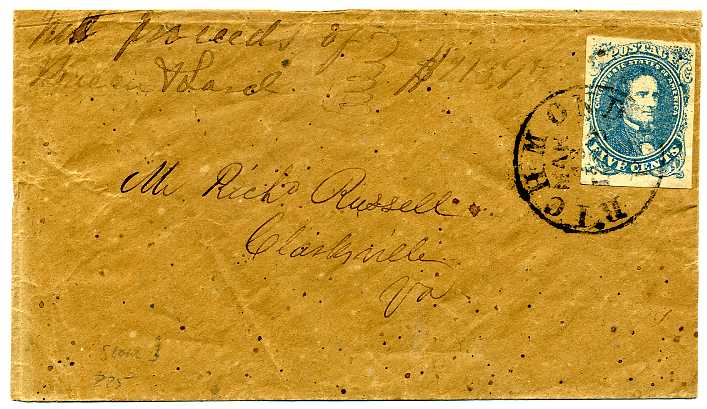 proceeds of
& Lard
POSTAGE
CONFEDERATE STATES OF AMERICA
FIVE CENTS
RICHMOND
MAR
Mr Richd Russell
Clarksville
Va